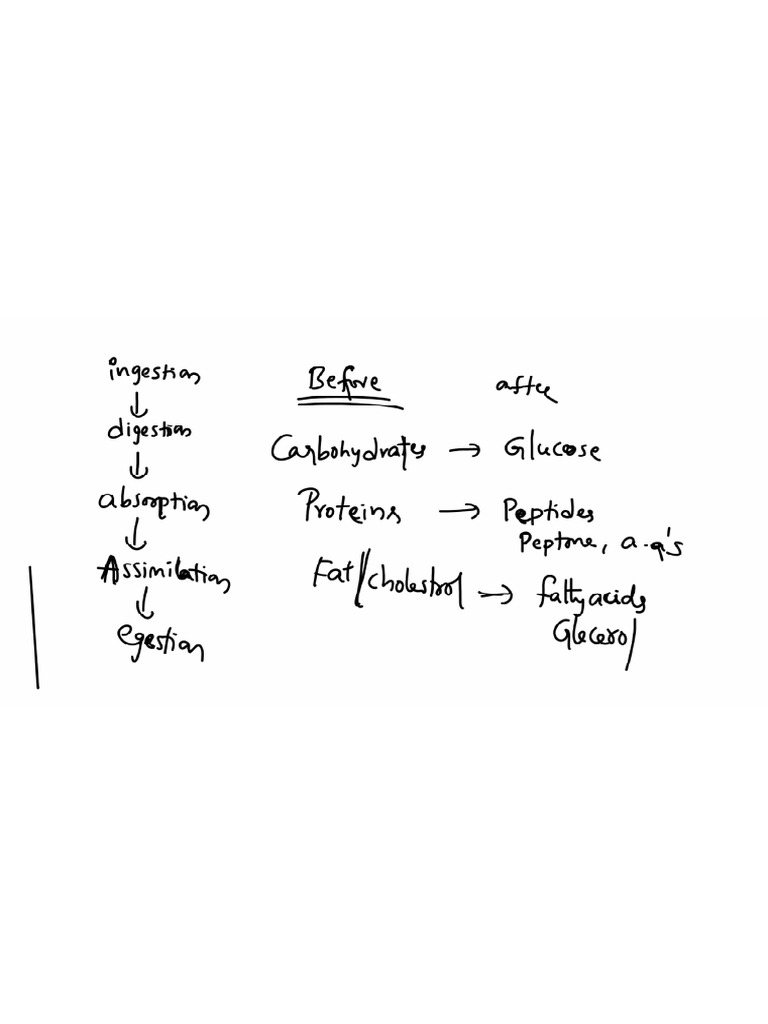 ingestion
↓
digestion
↓
absorption
↓
Assimilation
↓
egestion
Before after
Carbohydrates → Glucose
Proteins → Peptides
Peptone, a.a's
Fat/cholestrol → fattyacids
Glecerol